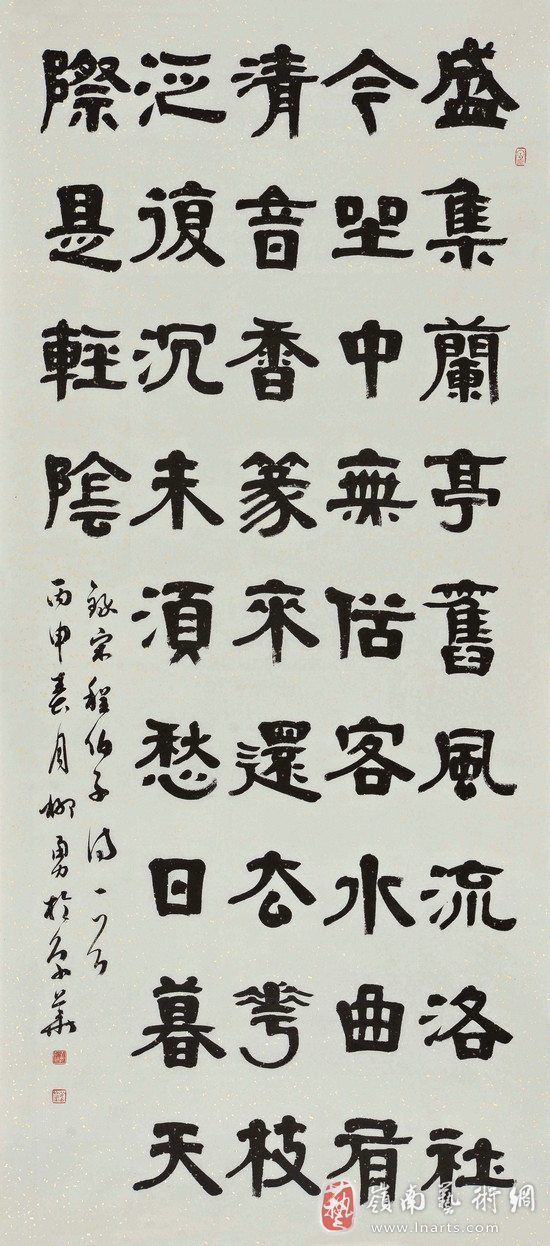 盛集蘭亭舊風流洛社
今坐中無俗客水曲有
清音香篆來還去花枝
泛復沉未須愁日暮天
際是輕陰
錄宋程伯子詩一首
丙申春月柳勇於京華
嶺南藝術網
www.lnarts.com